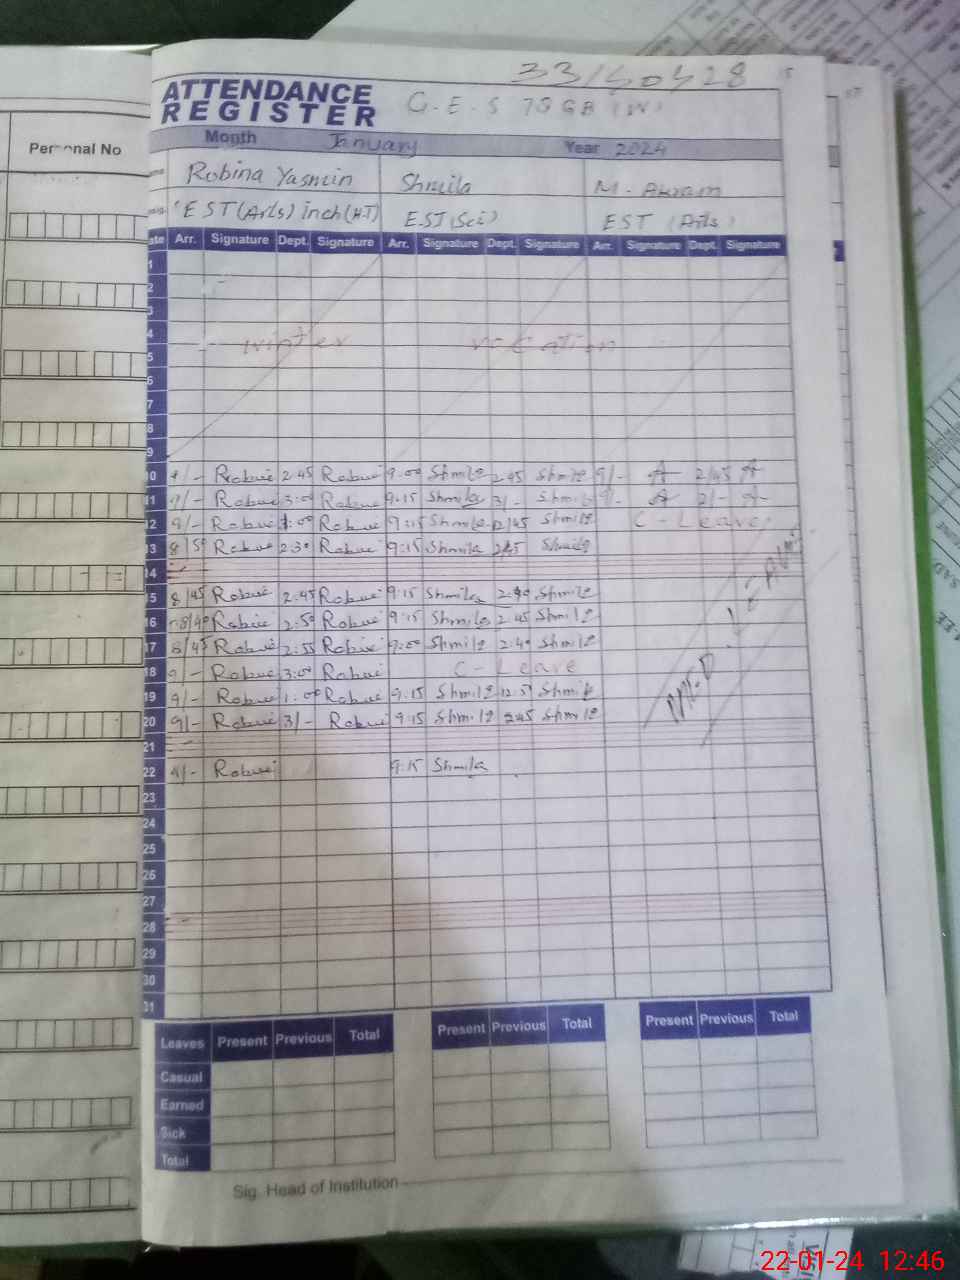 33140428
ATTENDANCE
REGISTER
G.E.S 78 GB (W)
Personal No
Month January Year 2024
Robina Yasmin Shmila M. Akram
EST (Arts) inch (H.T) EST (Sci) EST (Arts)
ate Arr. Signature Dept. Signature Arr. Signature Dept. Signature Arr. Signature Dept. Signature
1
2
3
4
winter vacation
5
6
7
8
9
10 9/- Robina 2:45 Robina 9:00 Shmila 2:45 Shmila 9/- 2/45
11 9/- Robina 3:00 Robina 9:15 Shmila 3/- Shmila 9/- 2/-
12 9/- Robina 1:00 Robina 9:15 Shmila 12/45 Shmila C-Leave
13 8/50 Robina 2:30 Robina 9:15 Shmila 2:45 Shmila
14
15 8/45 Robina 2:45 Robina 9:15 Shmila Shmila
16 8/40 Robina 2:50 Robina 9:15 Shmila 2:45 Shmila
17 8/45 Robina 2:55 Robina 9:00 Shmila 2:40 Shmila
18 9/- Robina 3:00 Robina C-Leave
19 9/- Robina 1:00 Robina 9:15 Shmila 12:5 Shmila
20 9/- Robina 3/- Robina 9:15 Shmila 2:45 Shmila
21
22 9/- Robina 9:15 Shmila
23
24
25
26
27
28
29
30
31
Leaves Present Previous Total Present Previous Total Present Previous Total
Casual
Earned
Sick
Total
Sig. Head of Institution
22-01-24 12:46